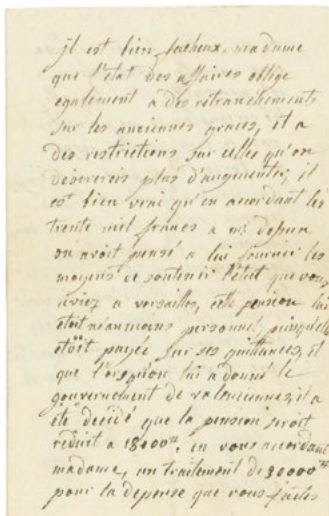 il est bien facheux, madame
que l'etat des affaires oblige
egalement a des retranchements
sur les anciennes graces, et a
des restrictions sur celles qu'on
desereroit plus d'augmenter, il
est bien vrai qu'en acordant les
trente mil francs a mr
on avoit pensé a lui fournir les
moyens de soutenir l'état que vous
aviez a versailles, cette pension lui
étoit néanmoins personnel puisquelle
étoit payée sur ses quittances, et
que l'orsqu'on lui a donné le
gouvernement de valenciennes, il a
été decidé que la pension seroit
reduit a en vous accordant
madame, un traitement de 30000
pour la depense que vous faites